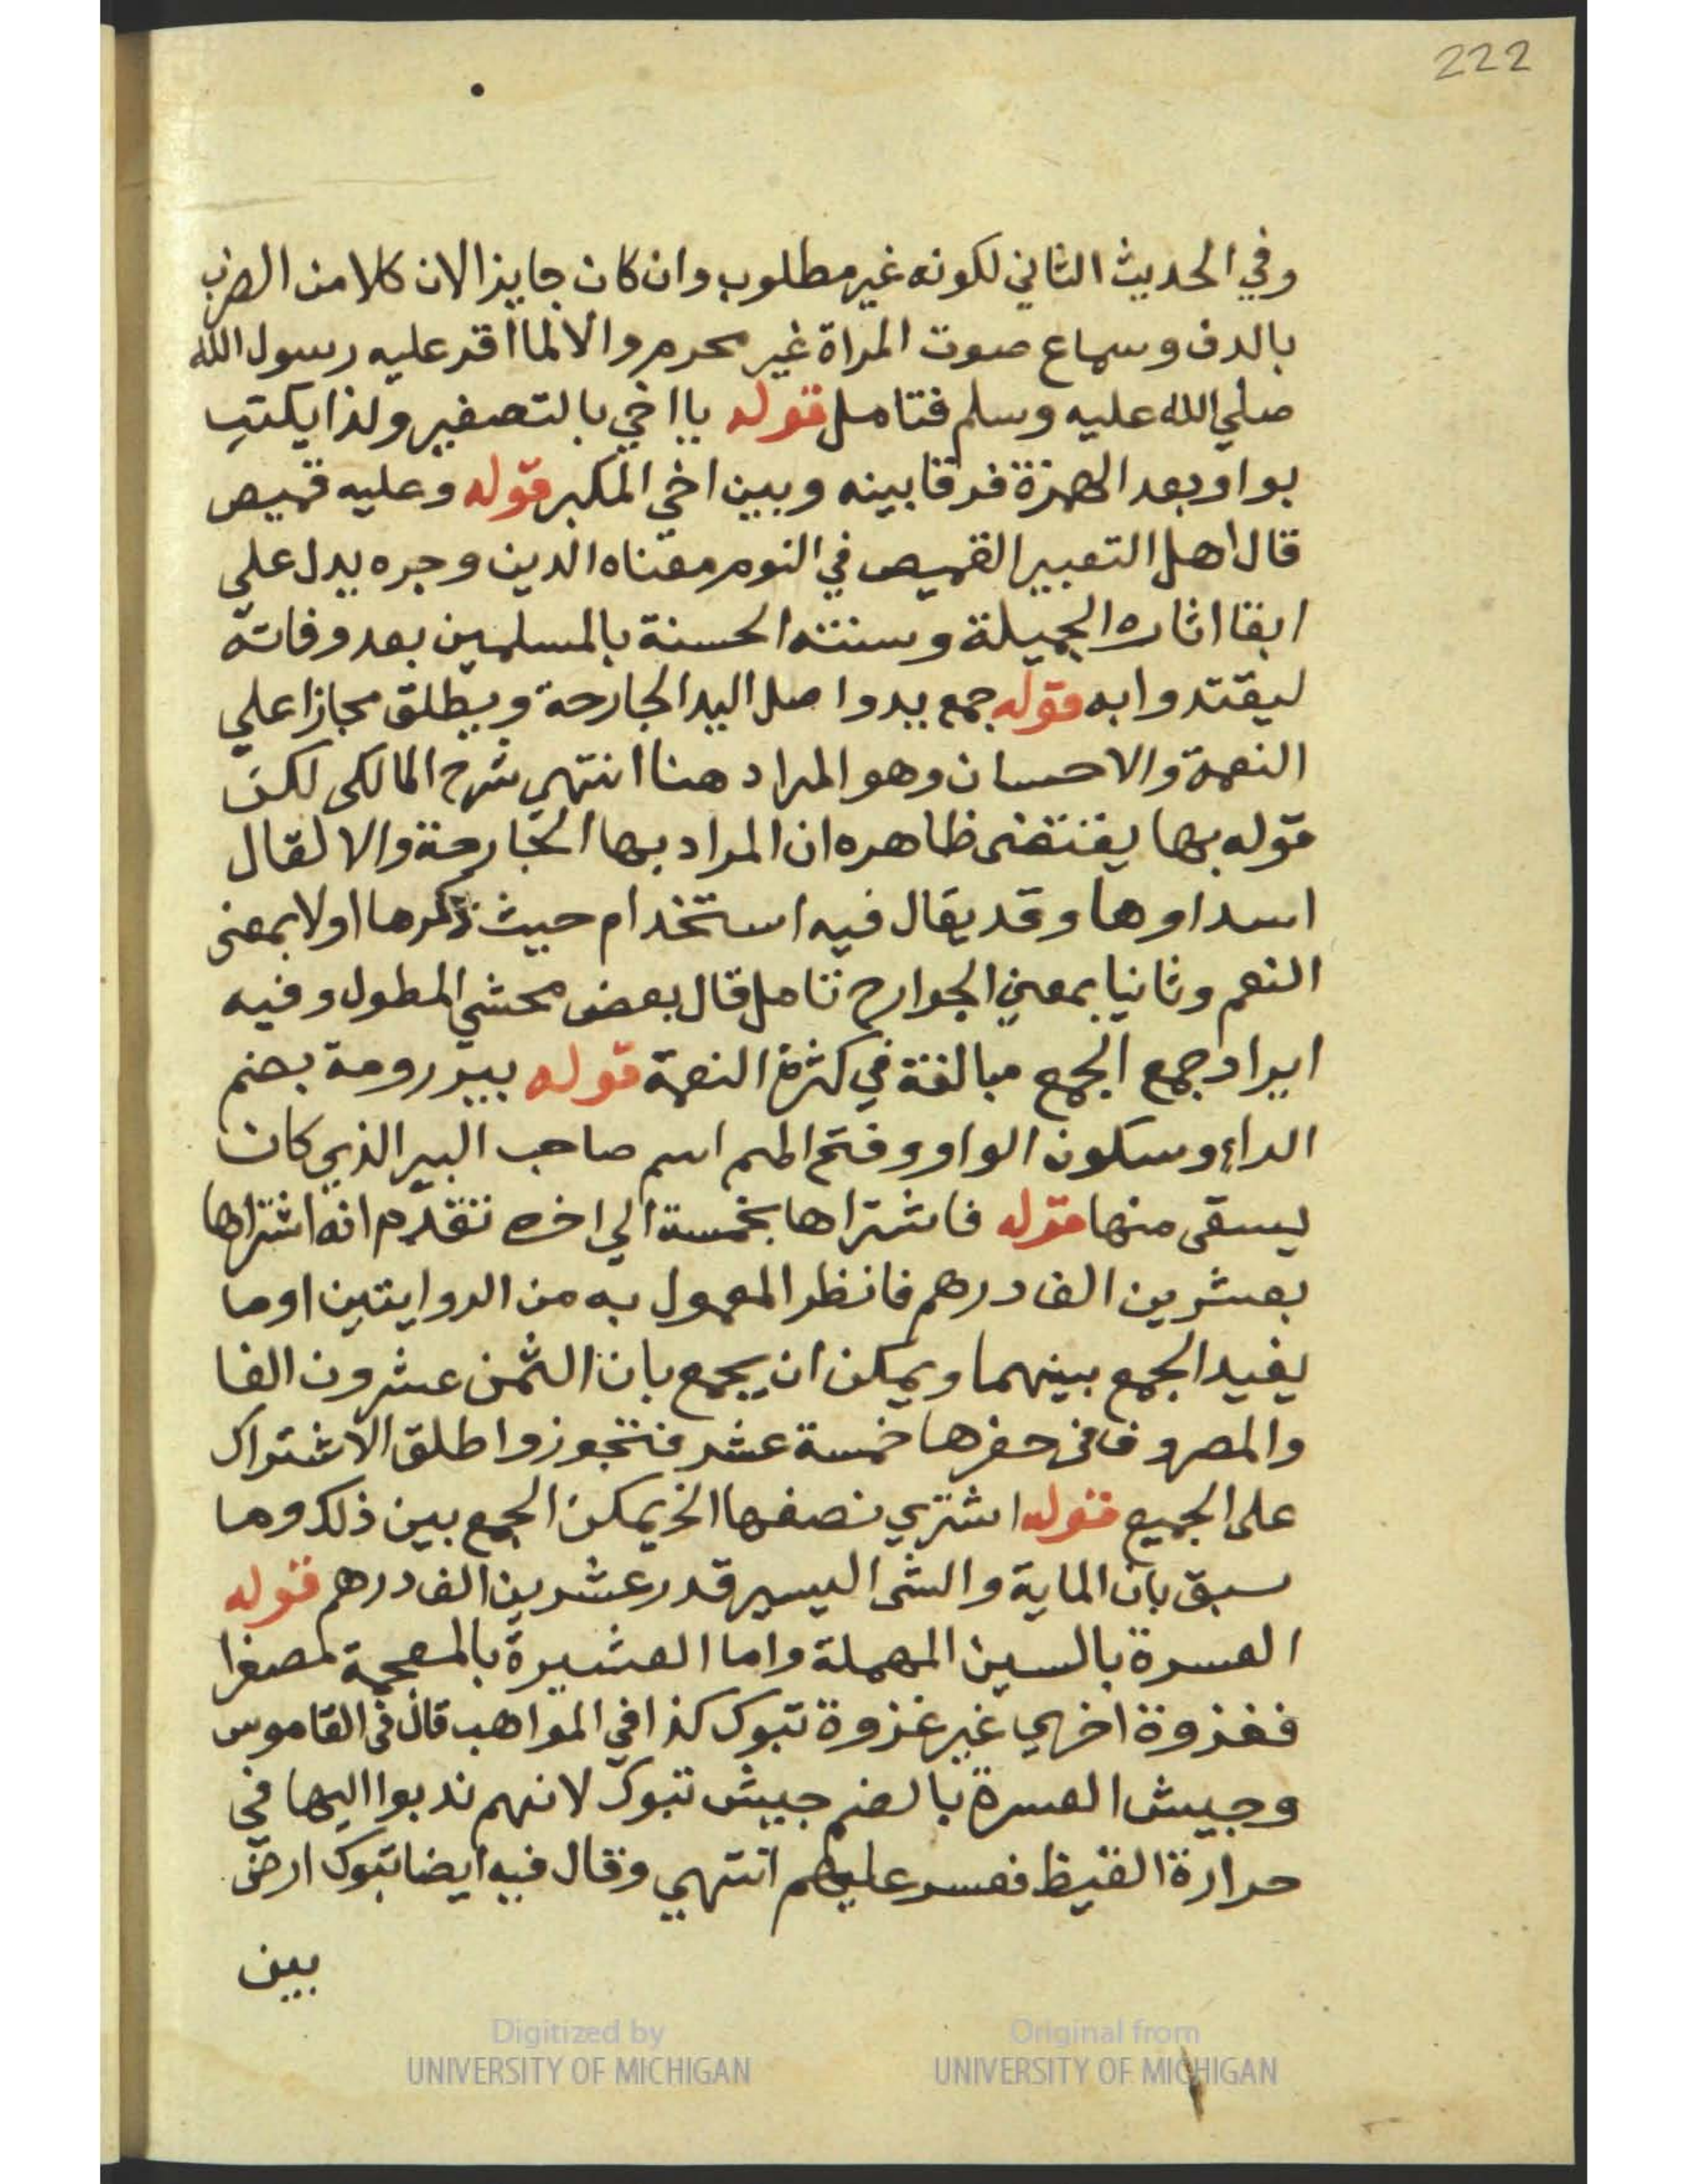 222
وفي الحديث الثاني لكونه غير مطلوب وان كان جايزا لان كلا من الضرب
بالدف وسماع صوت المراة غير محرم والا لما اقر عليه رسول الله
صلي الله عليه وسلم فتامل قوله يا اخي بالتصغير ولذا يكتب
بواو بعد الهمزة فرقا بينه وبين اخي المكبر قوله وعليه قميص
قال اهل التعبير القميص في النوم معناه الدين وجره يدل علي
ابقا اثاره الجميلة وسنته الحسنة بالمسلمين بعد وفاته
ليقتدوا به قوله جمع يد واصل اليد الجارحة ويطلق مجازا علي
النعمة والاحسان وهو المراد هنا انتهي شرح المالكى لكن
قوله بها يقتضى ظاهره ان المراد بها الجارحة والا لقال
اسداوها وقد يقال فيه استخدام حيث ذكرها اولا بمعنى
النعم وثانيا بمعني الجوارح تامل قال بعض محشي المطول وفيه
ايراد جمع الجمع مبالغة في كثرة النعمة قوله بير رومة بضم
الراء وسكون الواو وفتح الميم اسم صاحب البير الذي كان
يسقى منها قوله فاشتراها بخمسة الي اخره تقدم انه اشتراها
بعشرين الف درهم فانظر المعمول به من الروايتين او ما
يفيد الجمع بينهما ويمكن ان يجمع بان الثمن عشرون الفا
والمصروف فى حفرها خمسة عشر فتجوز واطلق الاشتراك
على الجميع قوله اشتري نصفها الخ يمكن الجمع بين ذلك وما
سبق بان الماية والشى اليسير قدر عشرين الف درهم قوله
العسرة بالسين المهملة واما العشيرة بالمعجمة مصغرا
فغزوة اخري غير غزوة تبوك كذا في المواهب قال فى القاموس
وجيش العسرة بالضم جيش تبوك لانهم ندبوا اليها في
حرارة القيظ فعسر عليهم انتهي وقال فيه ايضا تبوك ارض
بين
Digitized by
UNIVERSITY OF MICHIGAN
Original from
UNIVERSITY OF MICHIGAN